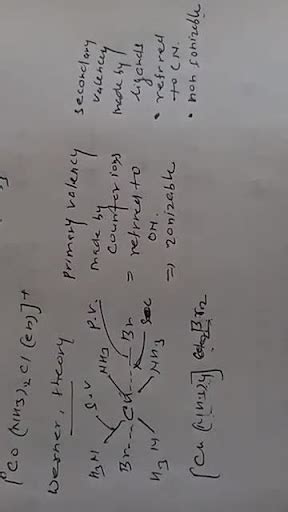 [Co (NH3)2 Cl (en)]+
Werner, theory
S.V P.V.
H3N NH3
Br---Cu----Br
H3N NH3 Sec
[Cu (NH3)4] Br2
primary valency
made by
counter ions
= retrred to
ON.
=> ionizable
secondary
valency
made by
ligands
• retrred
to C.N.
• non ionizable